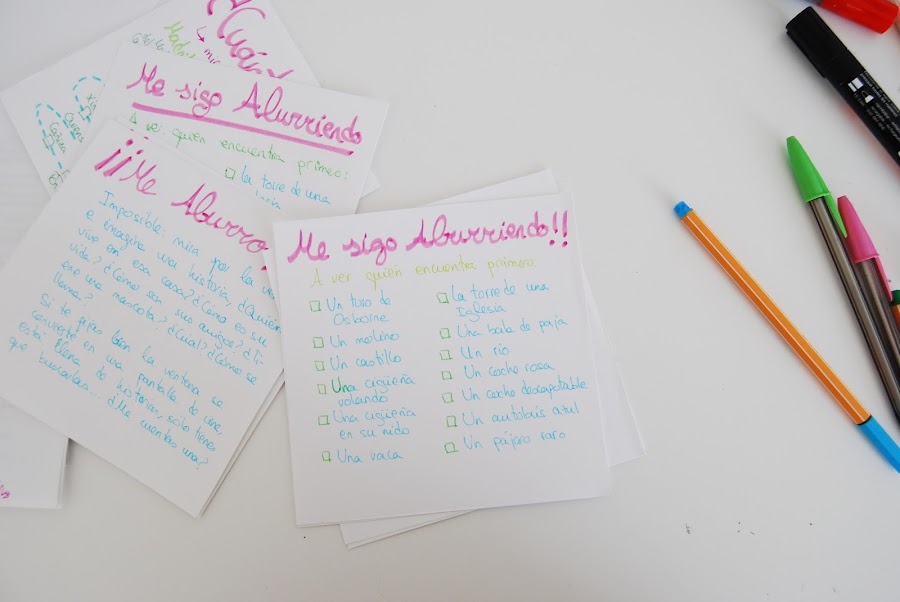 ¿Cuán
Me sigo Aburriendo
A ver quien encuentra primero:
La torre de una
¡¡Me Aburro
Imposible: mira por la
e imagina una historia, ¿Quién
vive en esa casa? ¿Cómo es su
vida? ¿Cómo son sus amigos? ¿Ti-
ene una mascota? ¿Cuál? ¿Cómo se
llama?
Si te fijas bien la ventana se
convierte en una pantalla de cine,
está llena de historias, sólo tienes
que buscarlas... ¿Me cuentas una?
Me sigo Aburriendo!!
A ver quién encuentra primero:
Un toro de
Osborne
Un molino
Un castillo
Una cigüeña
volando
Una cigüeña
en su nido
Una vaca
La torre de una
Iglesia
Una bala de paja
Un río
Un coche rosa
Un coche descapotable
Un autobús azul
Un pájaro raro